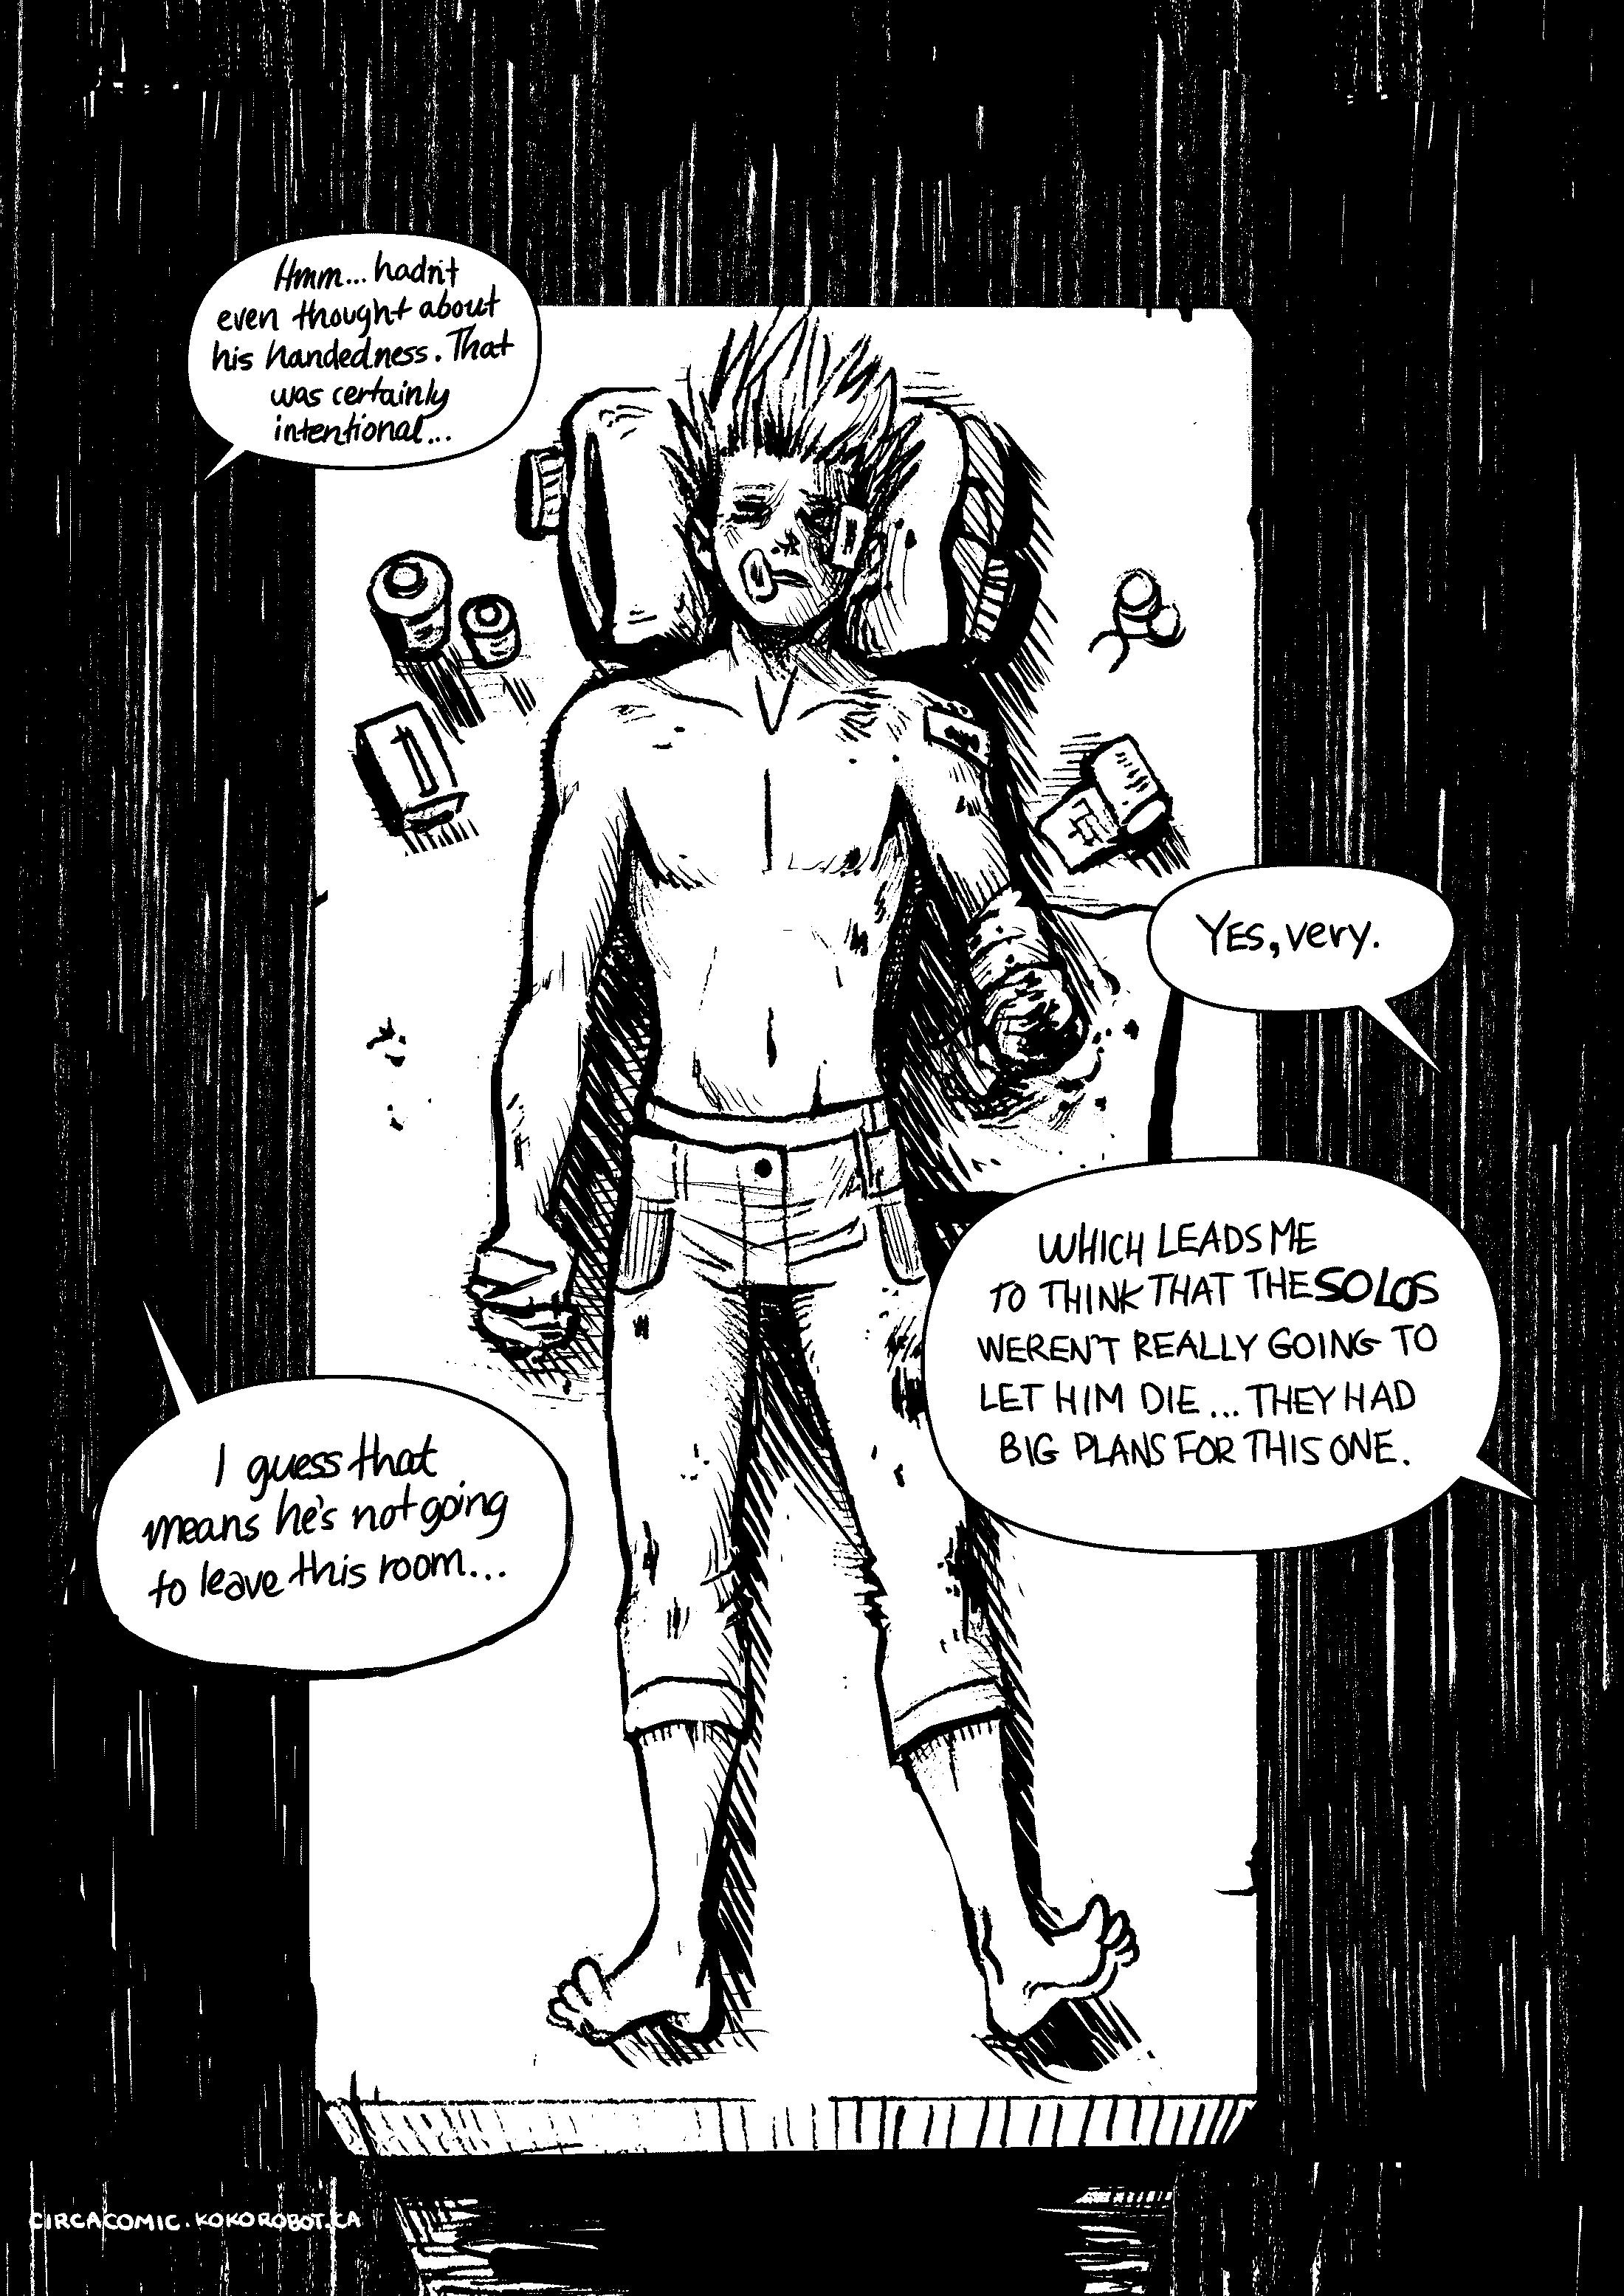 Hmm... hadn't
even thought about
his handedness. That
was certainly
intentional...
YES, very.
WHICH LEADS ME
TO THINK THAT THE SOLOS
WEREN'T REALLY GOING TO
LET HIM DIE... THEY HAD
BIG PLANS FOR THIS ONE.
I guess that
means he's not going
to leave this room...
CIRCACOMIC.KOKOROBOT.CA